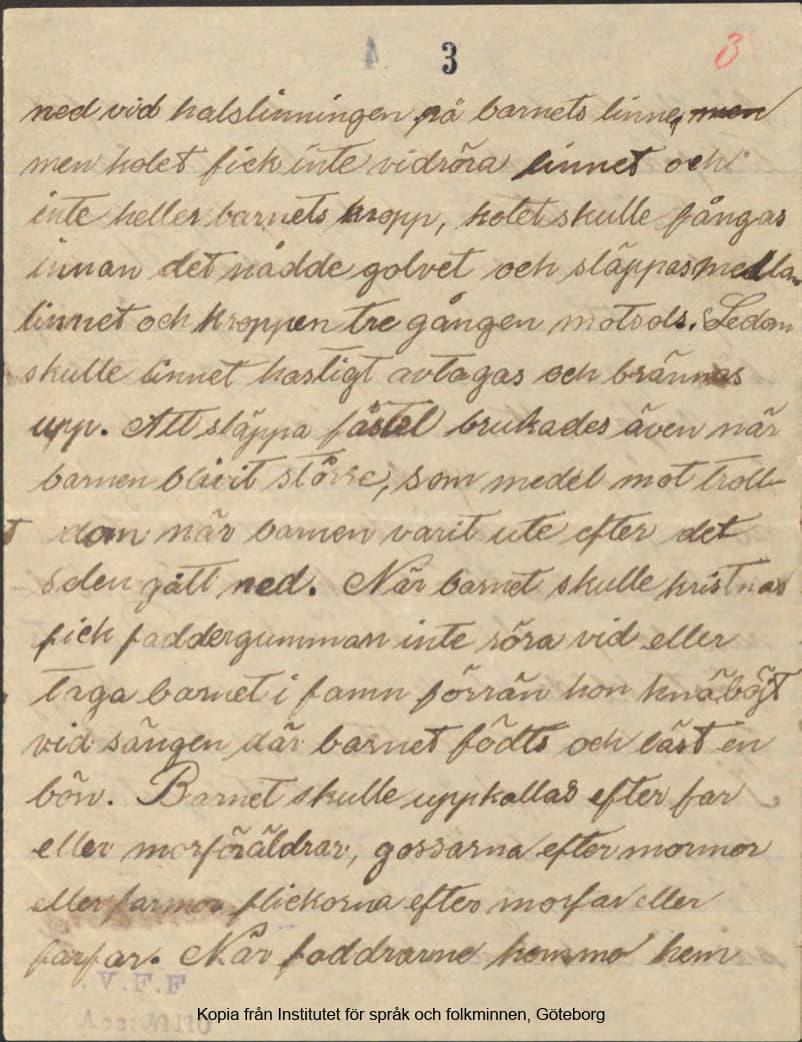 3 3
ned vid halslinningen på barnets linne, men
men kolet fick inte vidröra linnet och
inte heller barnets kropp, kolet skulle fångas
innan det nådde golvet och släppas mellan
linnet och kroppen tre gången motsols. Sedan
skulle linnet hastigt avtagas och brännas
upp. Att släppa fästel brukades även när
barnen blivit större, som medel mot troll-
dom när barnen varit ute efter det
solen gått ned. När barnet skulle kristnas
fick faddergumman inte röra vid eller
taga barnet i famn förrän hon knäböjt
vid sängen där barnet födts och läst en
bön. Barnet skulle uppkallas efter far
eller morföräldrar, gossarna efter mormor
eller farmor flickorna efter morfar eller
farfar. När faddrarne kommo hem
V.F.F
Acc: № 110
Kopia från Institutet för språk och folkminnen, Göteborg